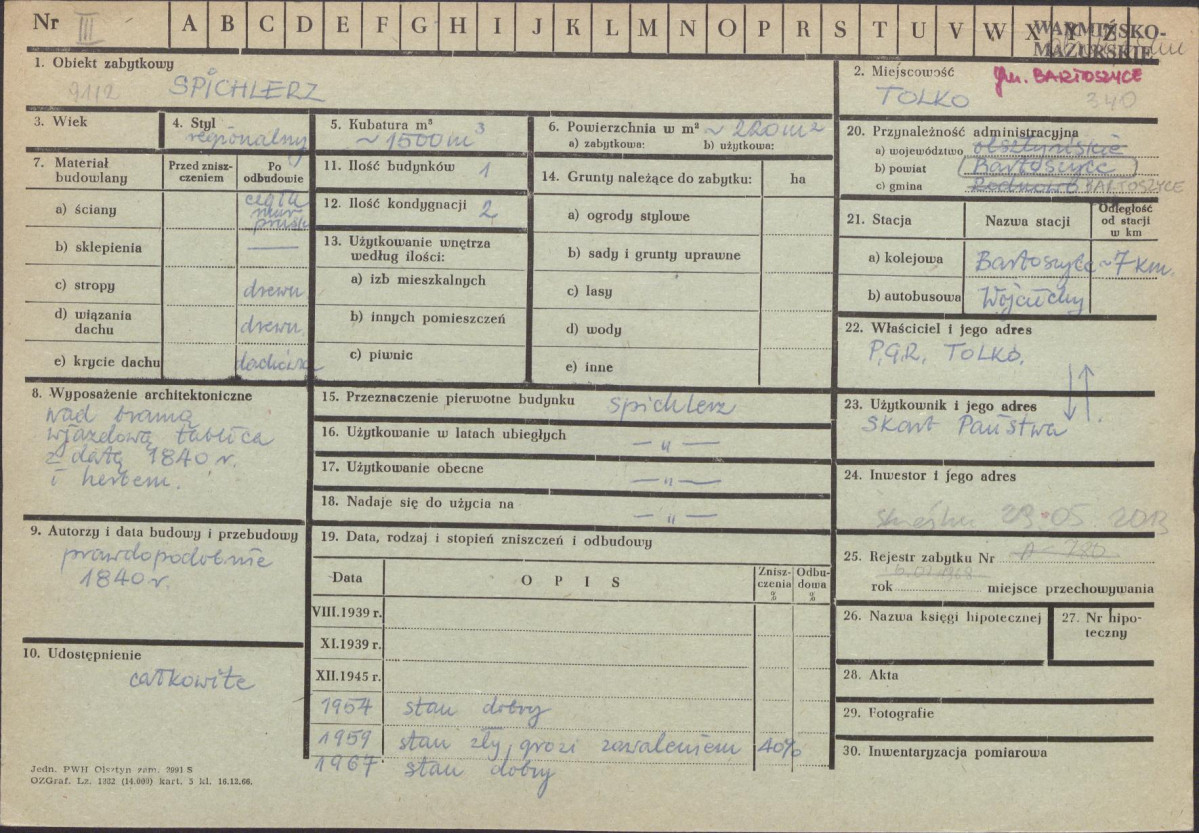 Nr III A B C D E F G H I J K L M N O P R S T U V W X Y Z
WARMIŃSKO-
MAZURSKIE
1. Obiekt zabytkowy
9112 SPICHLERZ
2. Miejscowość gm. BARTOSZYCE
TOLKO 340
3. Wiek
4. Styl
regionalny
5. Kubatura m³
~ 1500 m³
6. Powierzchnia w m² ~ 220 m²
a) zabytkowa: b) użytkowa:
7. Materiał
budowlany
Przed znisz-
czeniem
Po
odbudowie
a) ściany
cegła
mur
pruski
b) sklepienia —
c) stropy drewn.
d) wiązania
dachu drewn.
e) krycie dachu dachówka
8. Wyposażenie architektoniczne
nad bramą
wjazdową tablica
z datą 1840 r.
i herbem.
9. Autorzy i data budowy i przebudowy
prawdopodobnie
1840 r.
10. Udostępnienie
całkowite
11. Ilość budynków 1
12. Ilość kondygnacji 2
13. Użytkowanie wnętrza
według ilości:
a) izb mieszkalnych
b) innych pomieszczeń
c) piwnic
14. Grunty należące do zabytku: ha
a) ogrody stylowe
b) sady i grunty uprawne
c) lasy
d) wody
e) inne
15. Przeznaczenie pierwotne budynku spichlerz
16. Użytkowanie w latach ubiegłych — „ —
17. Użytkowanie obecne — „ —
18. Nadaje się do użycia na — „ —
19. Data, rodzaj i stopień zniszczeń i odbudowy
Data O P I S Znisz-
czenia
%
Odbu-
dowa
%
VIII.1939 r.
XI.1939 r.
XII.1945 r.
1954 stan dobry
1959 stan zły, grozi zawaleniem 40%
1967 stan dobry
20. Przynależność administracyjna
a) województwo olsztyńskie
b) powiat Bartoszyce
c) gmina Rodnowo BARTOSZYCE
21. Stacja Nazwa stacji
Odległość
od stacji
w km
a) kolejowa Bartoszyce ~ 7 km.
b) autobusowa Wojciechy
22. Właściciel i jego adres
P.G.R. TOLKO.
23. Użytkownik i jego adres
Skarb Państwa
24. Inwestor i jego adres
23.05.2013
25. Rejestr zabytku Nr
rok miejsce przechowywania
26. Nazwa księgi hipotecznej
27. Nr hipo-
teczny
28. Akta
29. Fotografie
30. Inwentaryzacja pomiarowa
Jedn. PWH Olsztyn zam. 2991 S
OZGraf. Lz. 1332 (14.000) kart. 3 kl. 16.12.66.